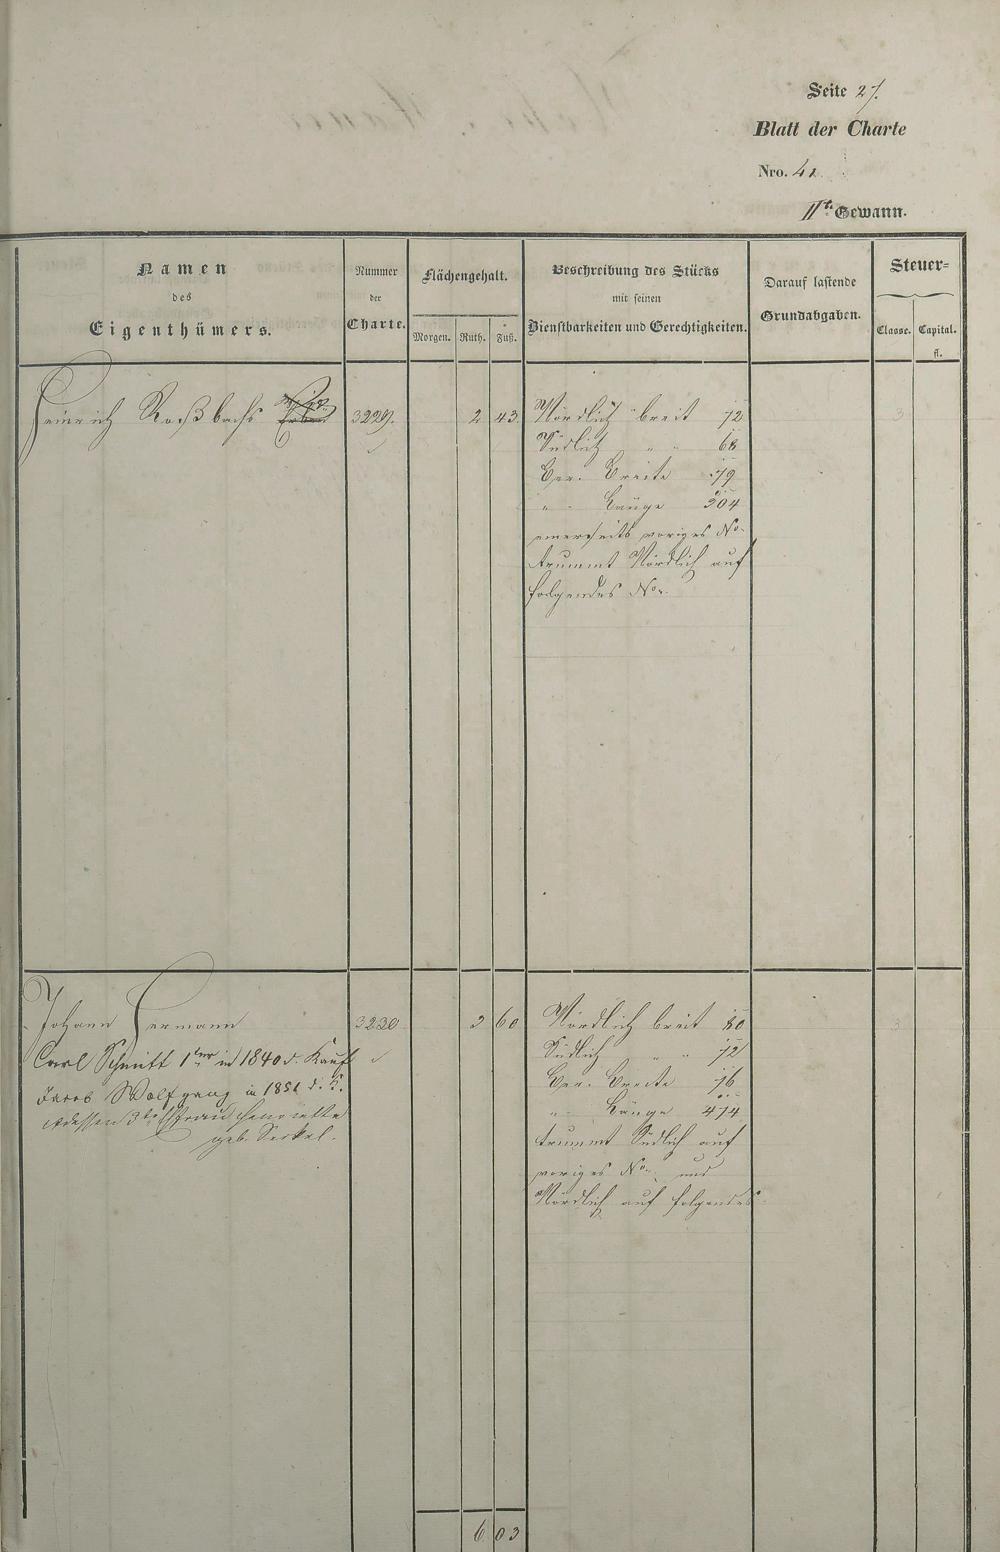 Seite 27.
Blatt der Charte
Nro. 41
IIte Gewann.
Namen
des
Eigenthümers.
Nummer
der
Charte.
Flächengehalt.
Morgen. Ruth. Fuß.
Beschreibung des Stücks
mit seinen
Dienstbarkeiten und Gerechtigkeiten.
Darauf lastende
Grundabgaben.
Steuer=
Classe. Capital.
fl.
Heinrich Roßbachs Erben 3229. 2 43 Nördlich breit 72 3
Südlich " " 68
Ger. Breite 79
" Länge 304
einerseits voriges No.
trummt Nördlich auf
folgendes No.
Johann Hermann 3230 3 60 Nördlich breit 80 3
Carl Schmitt 1ter in 1840 d. Kauf Südlich " " 72
Jacob Wolfgang in 1851 d. K. Ger. Breite 76
dessen Ehefrau Henriette " Länge 474
geb. Seckel. trummt Südlich auf
voriges No. und
Nördlich auf folgendes
6 03